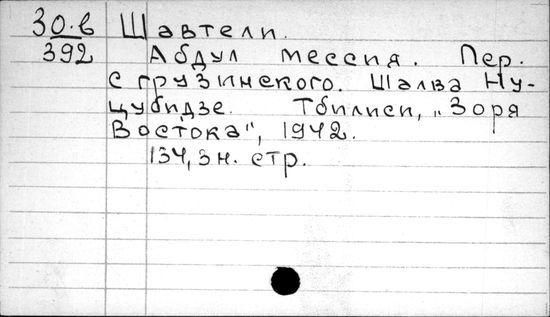 30.в Шавтели.
392 Абдул мессия. Пер.
с грузинского. Шалва Ну-
цубидзе. Тбилиси, "Заря
Востока", 1942.
134, 3 н. стр.